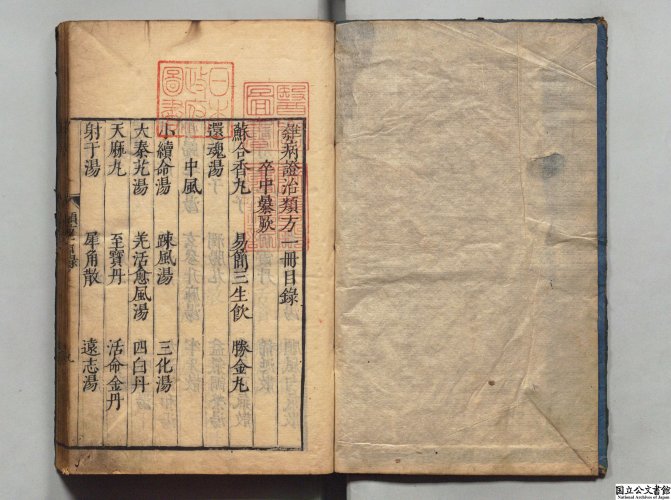 雜病證治類方一冊目錄
卒中暴厥
蘇合香丸 易簡三生飲 勝金丸
還魂湯
中風
小續命湯 疎風湯 三化湯
大秦艽湯 羌活愈風湯 四白丹
天麻丸 至寶丹 活命金丹
射干湯 犀角散 遠志湯
国立公文書館
National Archives of Japan